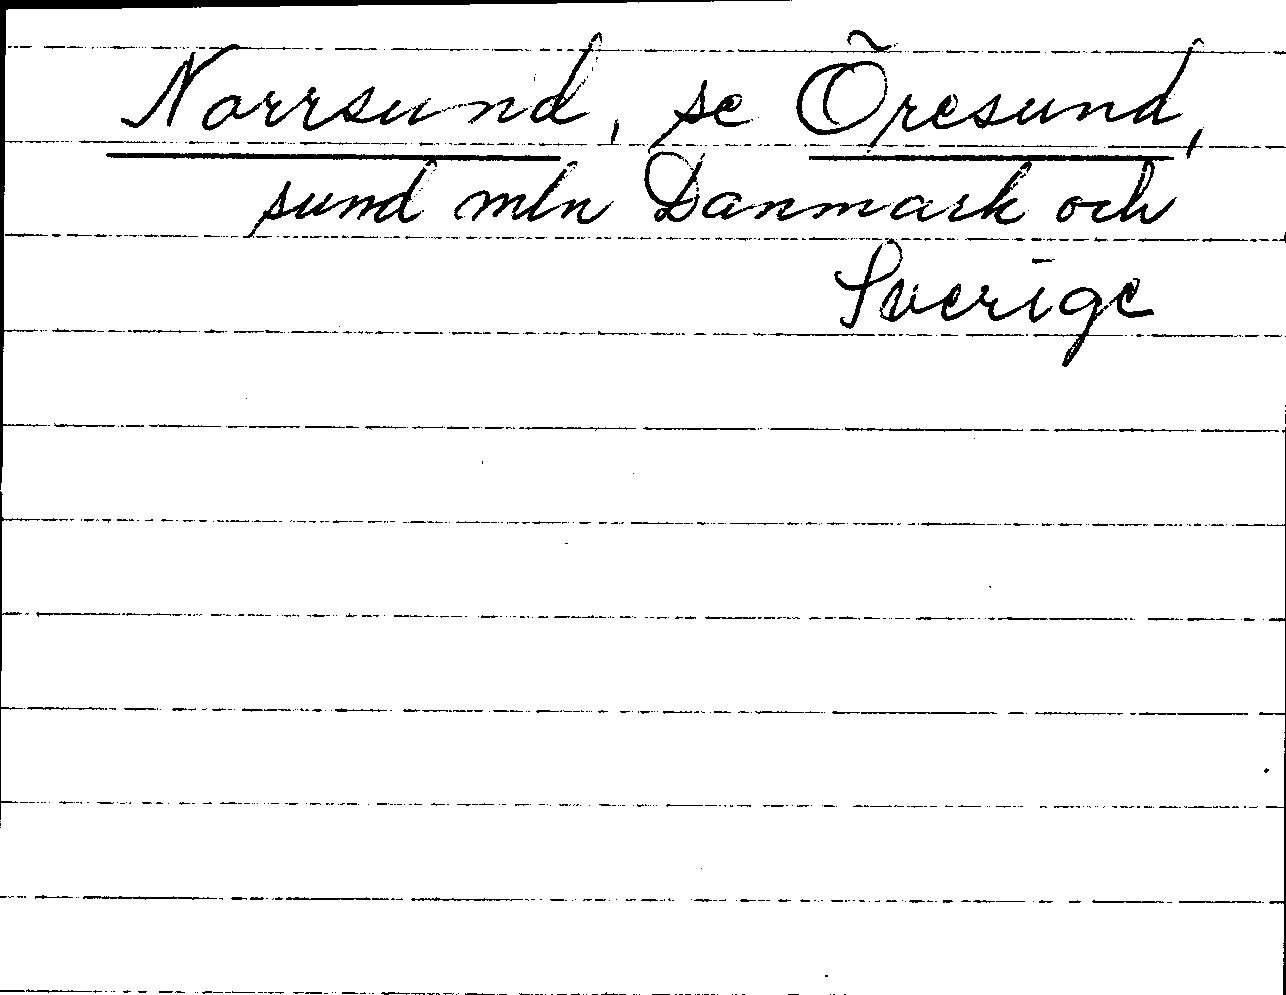 Norrsund, se Öresund,
sund mln Danmark och
Sverige